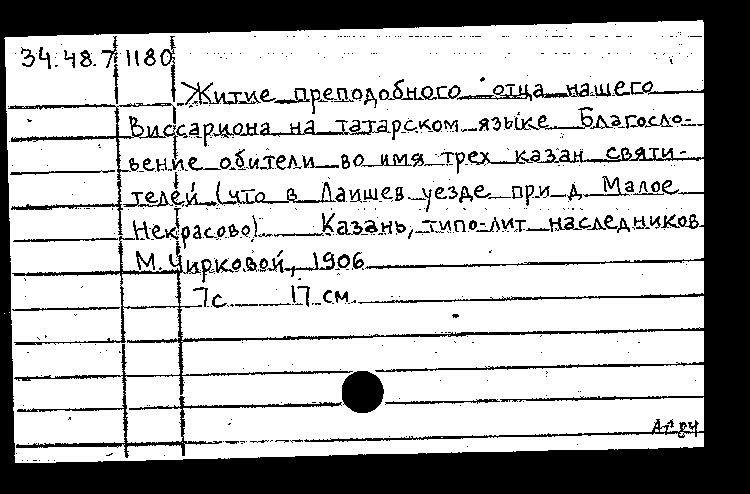 34.48.7 1180
Житие преподобного отца нашего
Виссариона на татарском языке Благосло-
вение обители во имя трех казан святи-
телей (что в Лаишев уезде при д. Малое
Некрасово) Казань, типо-лит наследников
М. Чирковой, 1906
7с 17 см